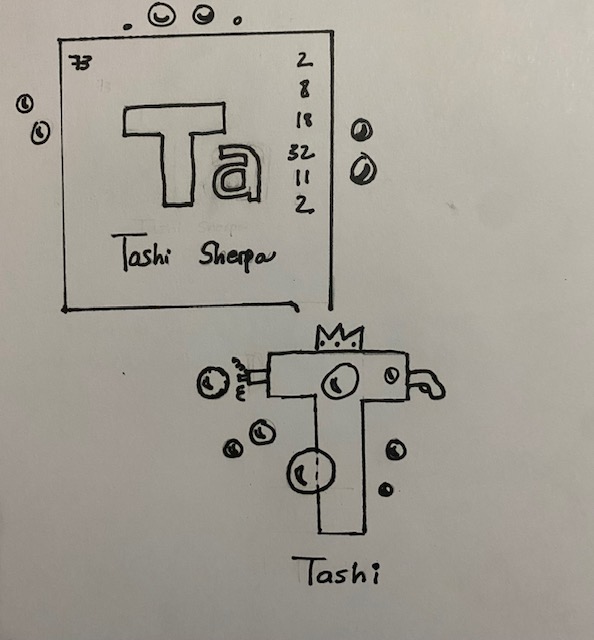 73
2
8
18
32
11
2
Ta
Tashi Sherpa
Tashi